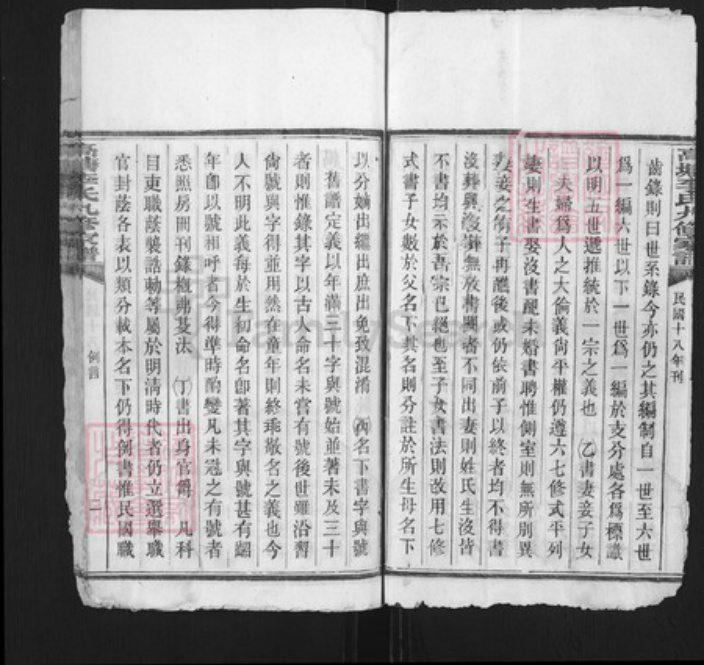 民國十八年刊
齒錄則曰世系錄今亦仍之其編制自一世至六世
爲一編六世以下一世爲一編於支分處各爲標識
以明五世遞推統於一宗之義也 乙書妻妾子女
夫婦爲人之大倫義尚平權仍遵六七修式平列
妻則生書娶沒書配未婚書聘惟側室則無所別異
妻妾之有子再醮後或仍依前子以終者均不得書
沒葬與沒葬無攷書闕者不同出妻則姓氏生沒皆
不書均示於吾宗已絕也至子女書法則改用七修
式書子女數於父名下其名則分註於所生母名下
以分嫡出繼出庶出免致混淆 丙名下書字與號
舊譜定義以年滿三十字與號始並著未及三十
者則惟錄其字以古人命名未嘗有號後世雖沿習
尙號與字得並用然在童年則終乖敬名之義也今
人不明此義每於生初命名卽著其字與號甚有齠
年卽以號相呼者今得準時酌變凡未冠之有號者
悉照房冊刊錄槪弗芟汰 丁書出身官爵 凡科
目吏職蔭襲誥勅等屬於明清時代者仍立選舉職
官封蔭各表以類分載本名下仍得例書惟民國職
例言